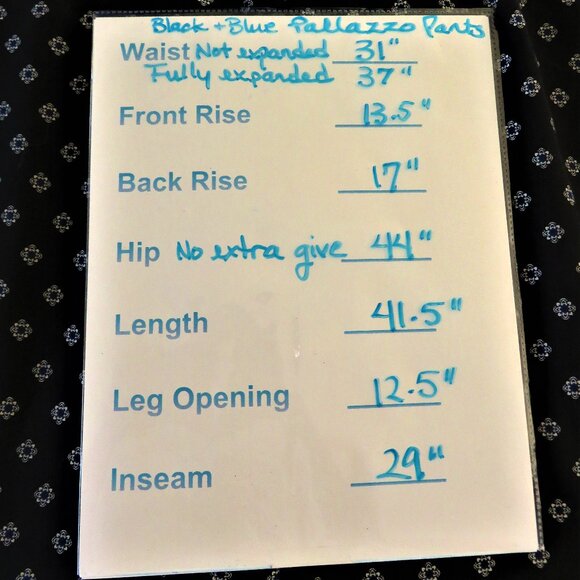 Black + Blue Pallazzo Pants
Waist Not expanded 31"
Fully expanded 37"
Front Rise 13.5"
Back Rise 17"
Hip No extra give 44"
Length 41.5"
Leg Opening 12.5"
Inseam 29"